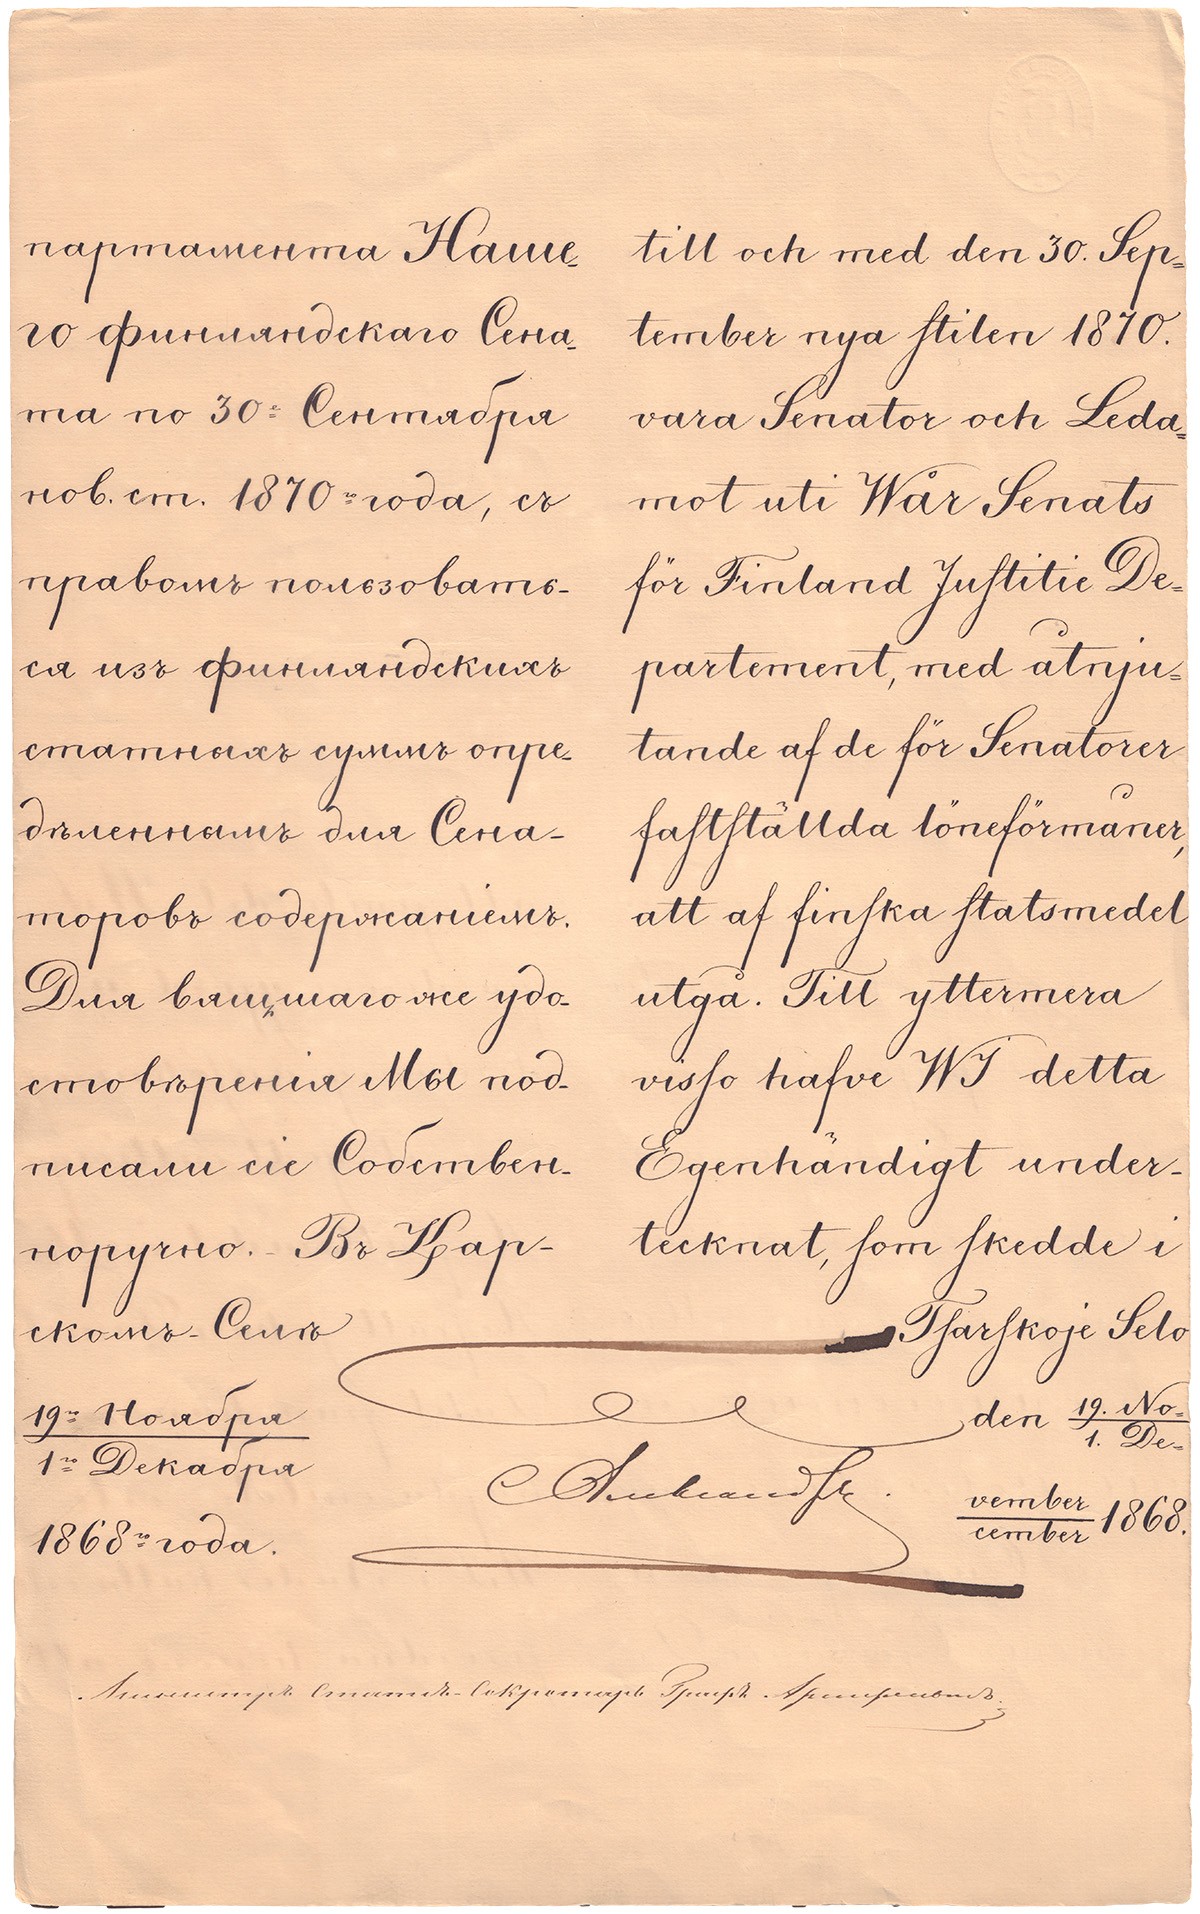 партамента Наше-
го финляндскаго Сена-
та по 30е Сентября
нов. ст. 1870го года, съ
правомъ пользовать-
ся изъ финляндскихъ
статныхъ суммъ опре-
дѣленнымъ для Сена-
торовъ содержаніемъ.
Для вящшаго же удо-
стовѣренія Мы под-
писали сіе Собствен-
норучно. - Въ Цар-
скомъ-Селѣ
19го Ноября
1го Декабря
1868го года.
till och med den 30. Sep-
tember nya stilen 1870.
vara Senator och Leda-
mot uti Wår Senats
för Finland Justitie De-
partement, med åtnju-
tande af de för Senatorer
fastställda löneförmåner,
att af finska statsmedel
utgå. Till yttermera
visso hafve WJ detta
Egenhändigt under-
tecknat, som skedde i
Tsarskoje Selo
den 19. No-
1. De-
vember
cember 1868.
Александръ.
Министръ Статсъ-Секретарь Графъ Армфельтъ.